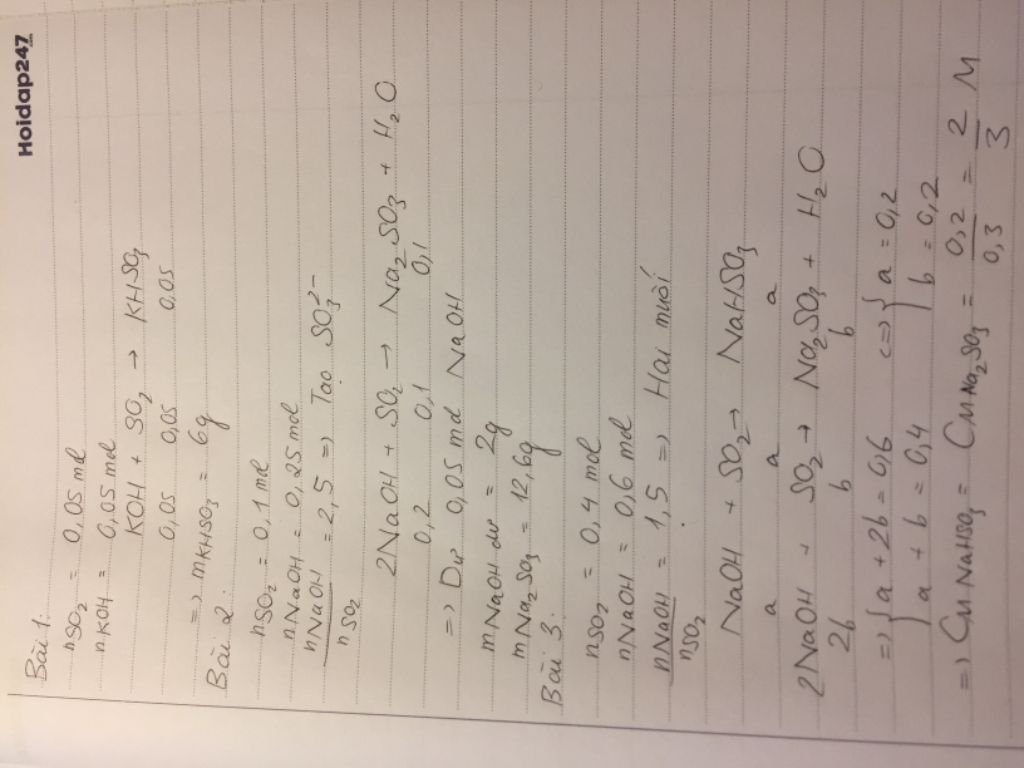 Holdap247
Bài 1.
nSO₂ = 0,05 mol
nKOH = 0,05 mol
KOH + SO₂ → KHSO₃
0,05 0,05 0,05
=> mKHSO₃ = 6g
Bài 2:
nSO₂ = 0,1 mol
nNaOH = 0,25 mol
nNaOH/nSO₂ = 2,5 => Tạo SO₃²⁻
2NaOH + SO₂ → Na₂SO₃ + H₂O
0,2 0,1 0,1
=> Dư 0,05 mol NaOH
mNaOH dư = 2g
mNa₂SO₃ = 12,6g
Bài 3.
nSO₂ = 0,4 mol
nNaOH = 0,6 mol
nNaOH/nSO₂ = 1,5 => Hai muối
NaOH + SO₂ → NaHSO₃
a a a
2NaOH + SO₂ → Na₂SO₃ + H₂O
2b b b
=> { a + 2b = 0,6 <=> { a = 0,2
{ a + b = 0,4 { b = 0,2
=> CM NaHSO₃ = CM Na₂SO₃ = 0,2/0,3 = 2/3 M